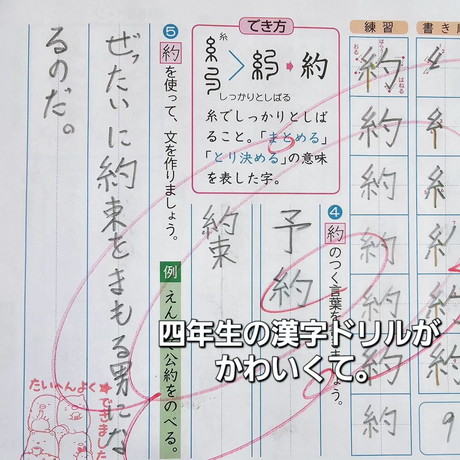 練習
書き順
おる
はねる
約
約
約
約
約
約
約
でき方
糸
約
しっかりとしばる
糸でしっかりとしば
ること。「まとめる」
「とり決める」の意味
を表した字。
❹
約のつく言葉を
しょう。
予約
約束
❺
約を使って、文を作りましょう。
例
えん
公約をのべる。
ぜったいに約束をまもる男にな
るのだ。
たいへんよく
できました
四年生の漢字ドリルが
かわいくて。